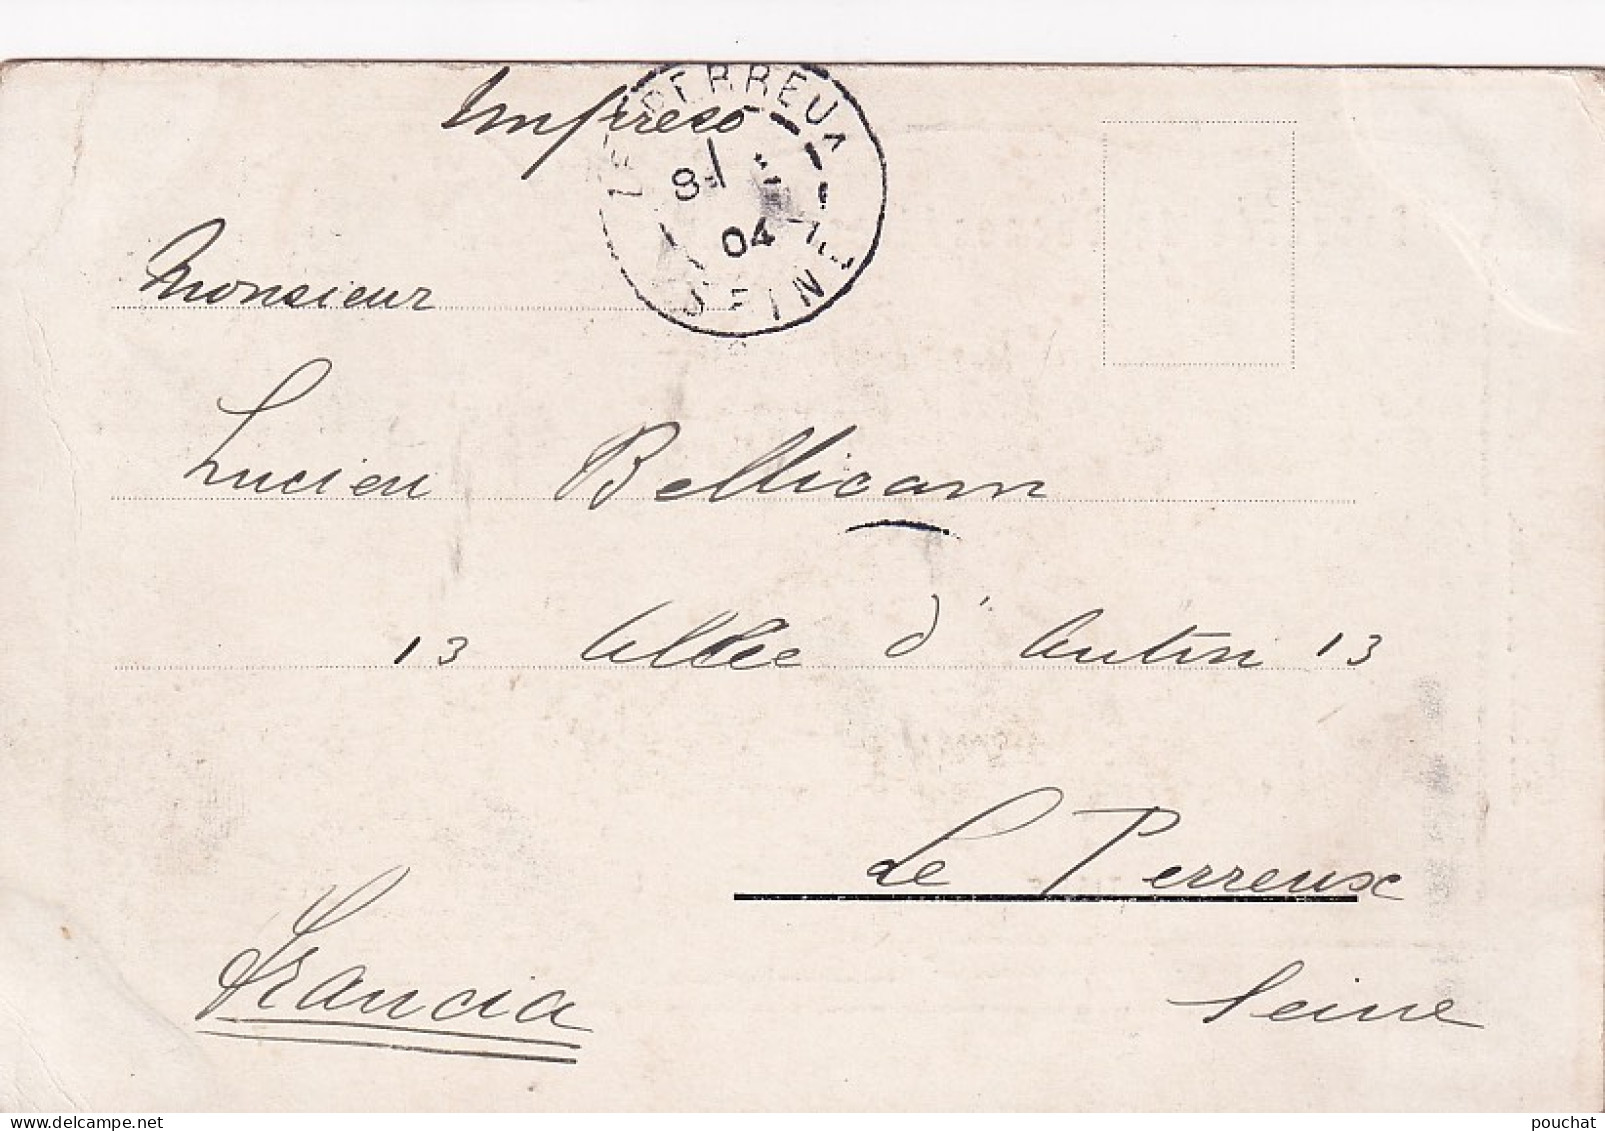 Impreso
LE PERREUX
8
04
SEINE
Monsieur
Lucien Bellicam
13 Allée d'Antin 13
Le Perreux
Seine
Francia
pouchat